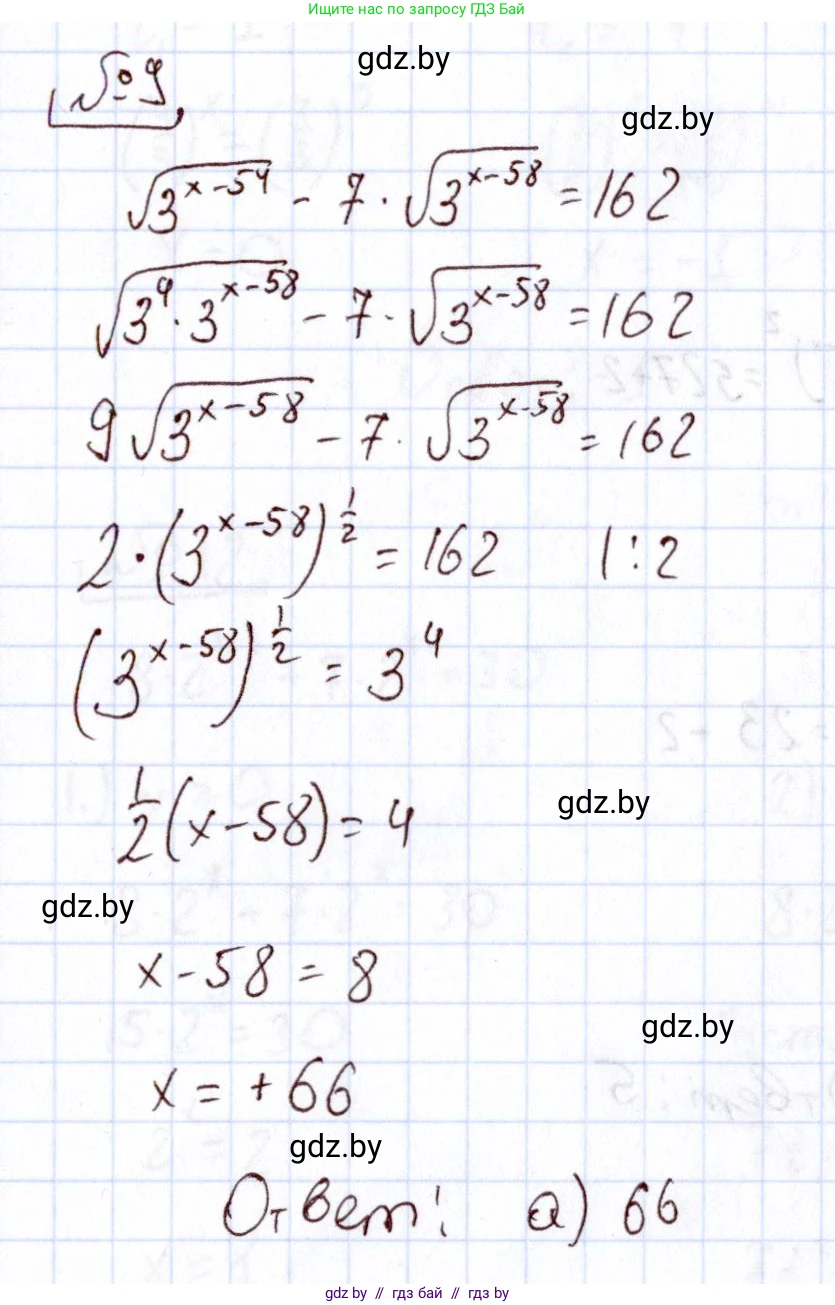 Ищите нас по запросу ГДЗ Бай
gdz.by
№9
gdz.by
√(3^(x-54)) - 7 · √(3^(x-58)) = 162
√(3^4 · 3^(x-58)) - 7 · √(3^(x-58)) = 162
9√(3^(x-58)) - 7 · √(3^(x-58)) = 162
2 · (3^(x-58))^(1/2) = 162 | : 2
(3^(x-58))^(1/2) = 3^4
1/2 (x - 58) = 4
gdz.by
gdz.by
x - 58 = 8
gdz.by
x = + 66
gdz.by
Ответ: а) 66
gdz.by // гдз бай // гдз by